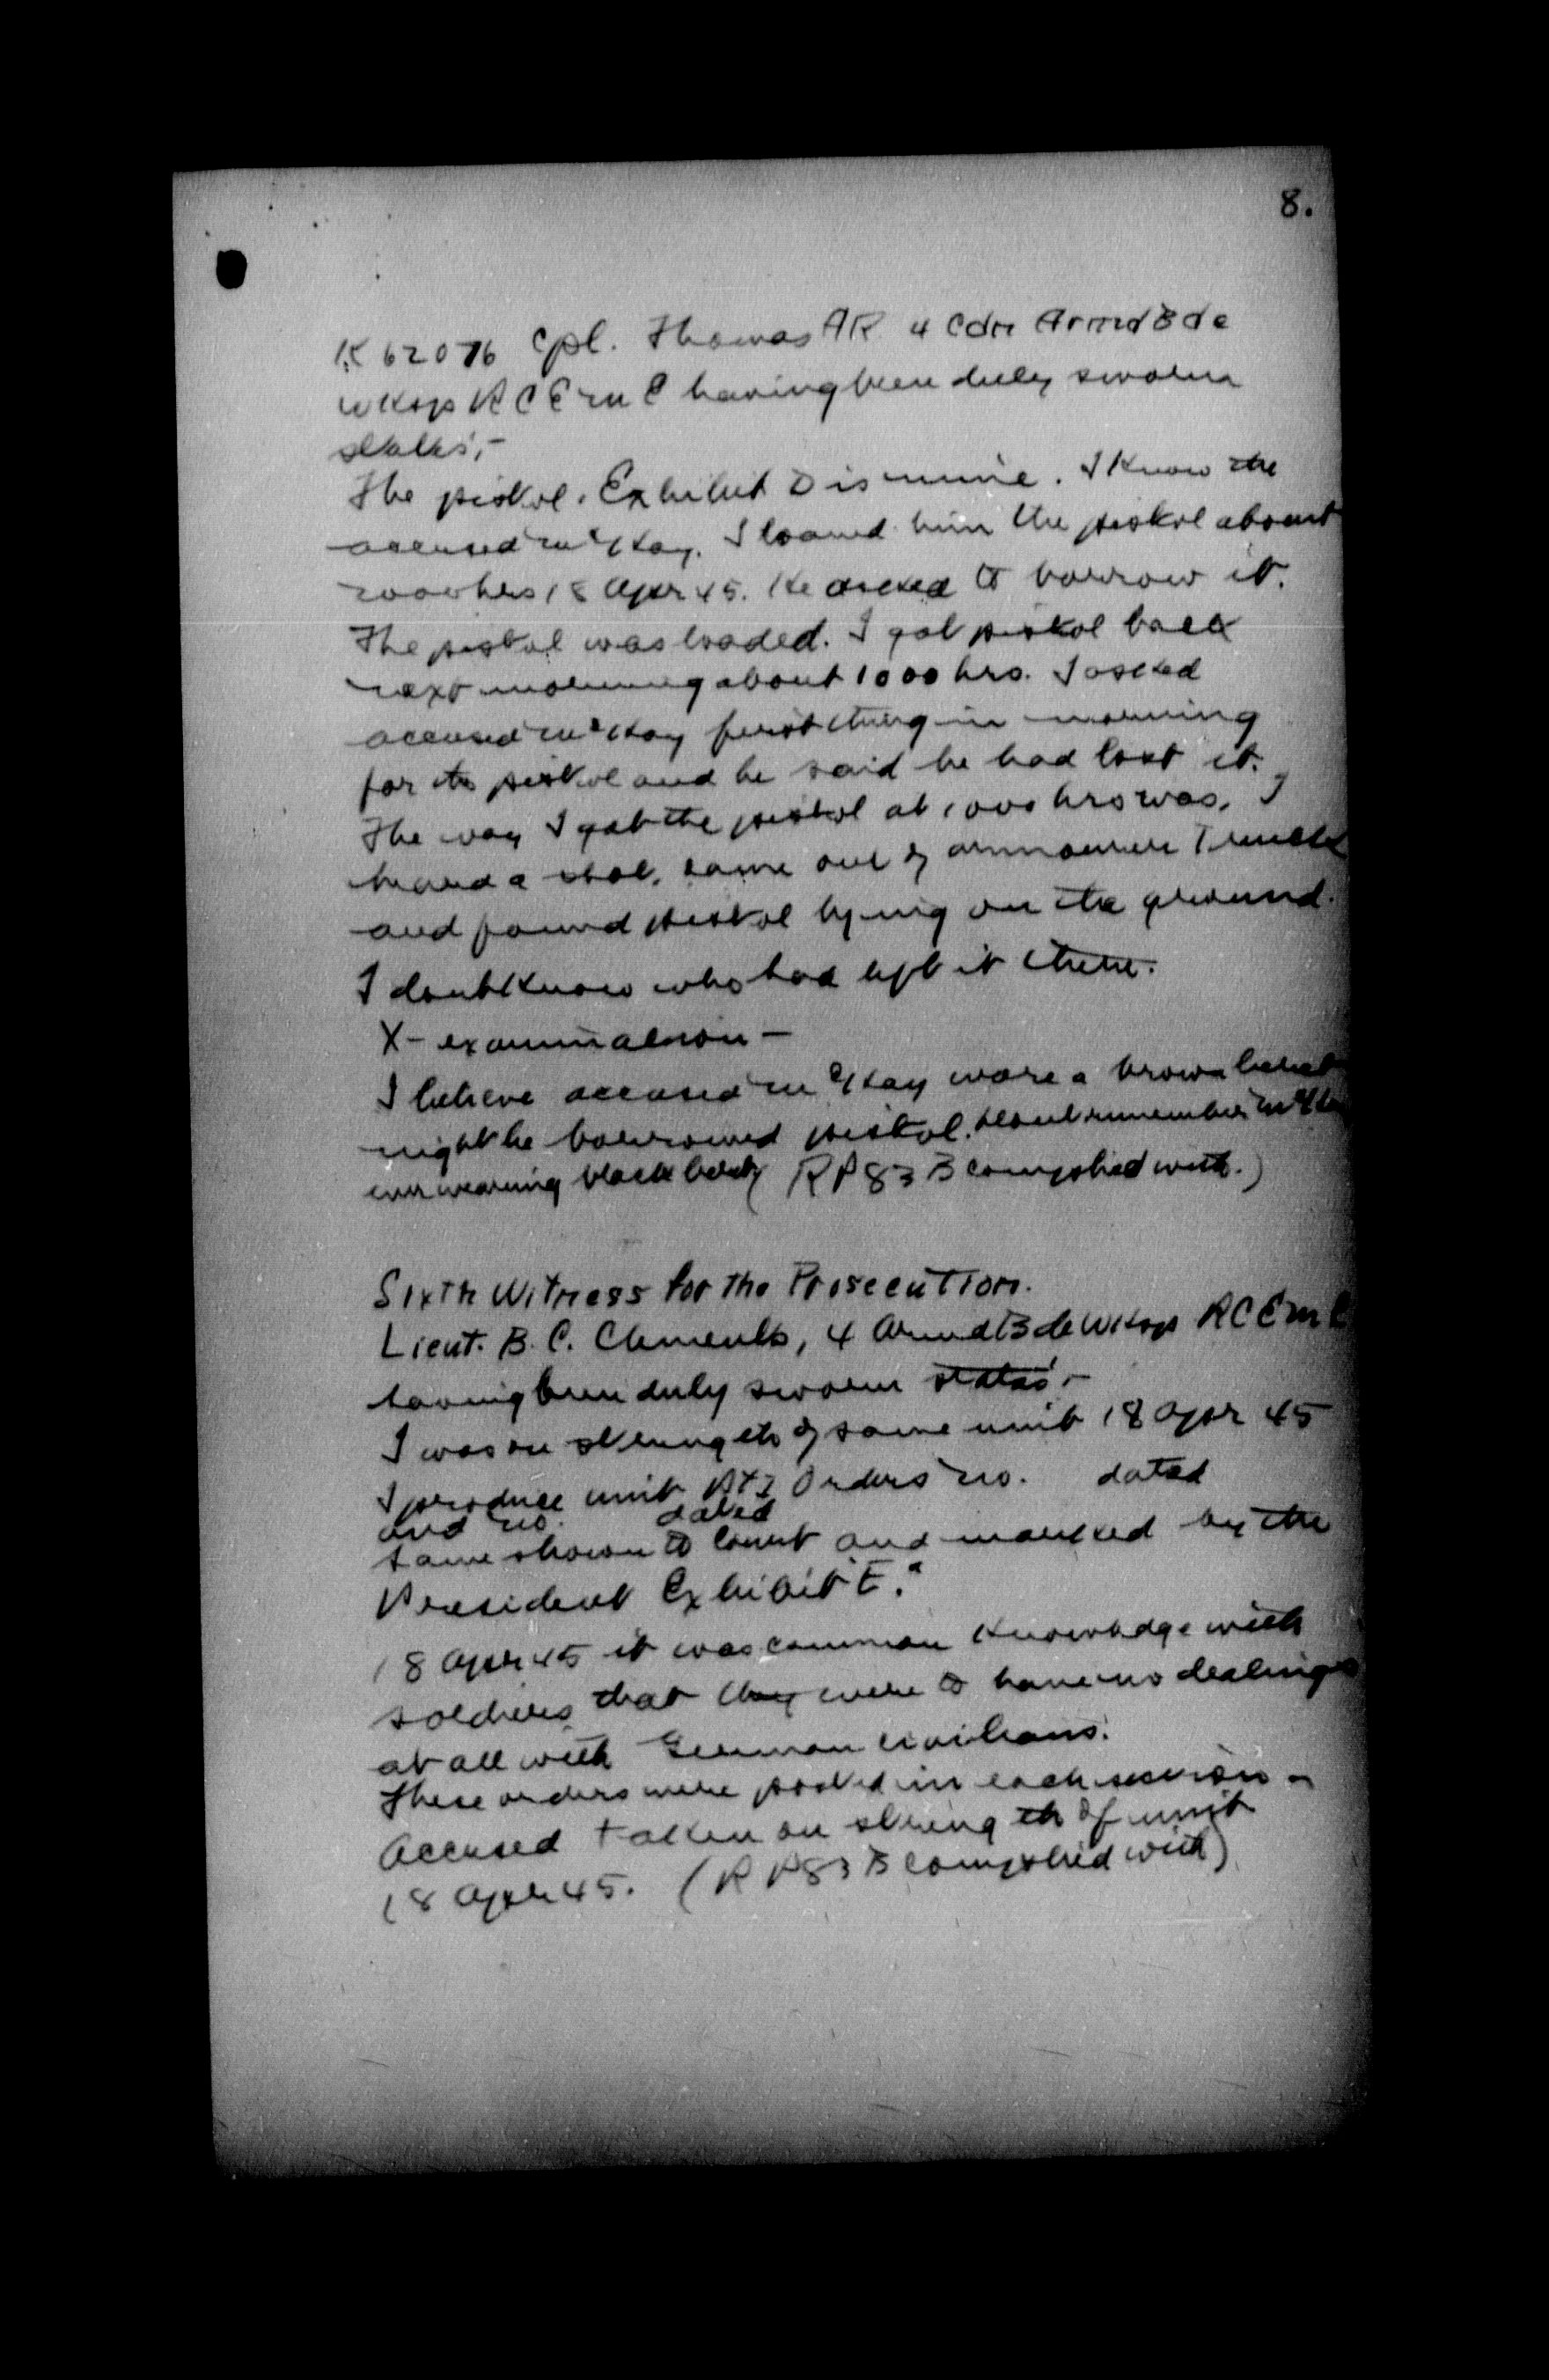 8.
K 62076 Cpl. Thomas AR 4 Cdn Armd Bde
Wksps RCEMC having been duly sworn
states;-
The pistol, Exhibit D is mine. I know the
accused McKay. I loaned him the pistol about
2000 hrs 18 Apr 45. He asked to borrow it.
The pistol was loaded. I got pistol back
next morning about 1000 hrs. I asked
accused McKay first thing in morning
for the pistol and he said he had lost it.
The way I got the pistol at 1000 hrs was, I
heard a shot, came out of armourers Truck
and found pistol lying on the ground.
I dont know who had left it there.
X-examination -
I believe accused McKay wore a brown beret
night he borrowed pistol. Dont remember McKay
ever wearing black beret (RP 83 B complied with.)
Sixth Witness for the Prosecution.
Lieut. B. C. Clements, 4 Armd Bde Wksps RCEMC
having been duly sworn states;-
I was on strength of same unit 18 Apr 45
I produce unit Pt I Orders no. dated
and no. dated
same shown to Court and marked by the
President Exhibit "E."
18 Apr 45 it was common knowledge with
soldiers that they were to have no dealings
at all with German civilians.
These orders were posted in each section -
Accused taken on strength of unit
18 Apr 45. (RP 83 B complied with)